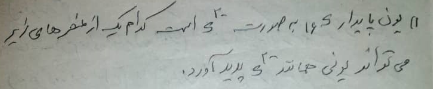 ۱۱ یون پایدار ₁₆S به صورت S²⁻ است کدام یک از عنصرهای زیر
می تواند یونی همانند S²⁻ پدید آورد.